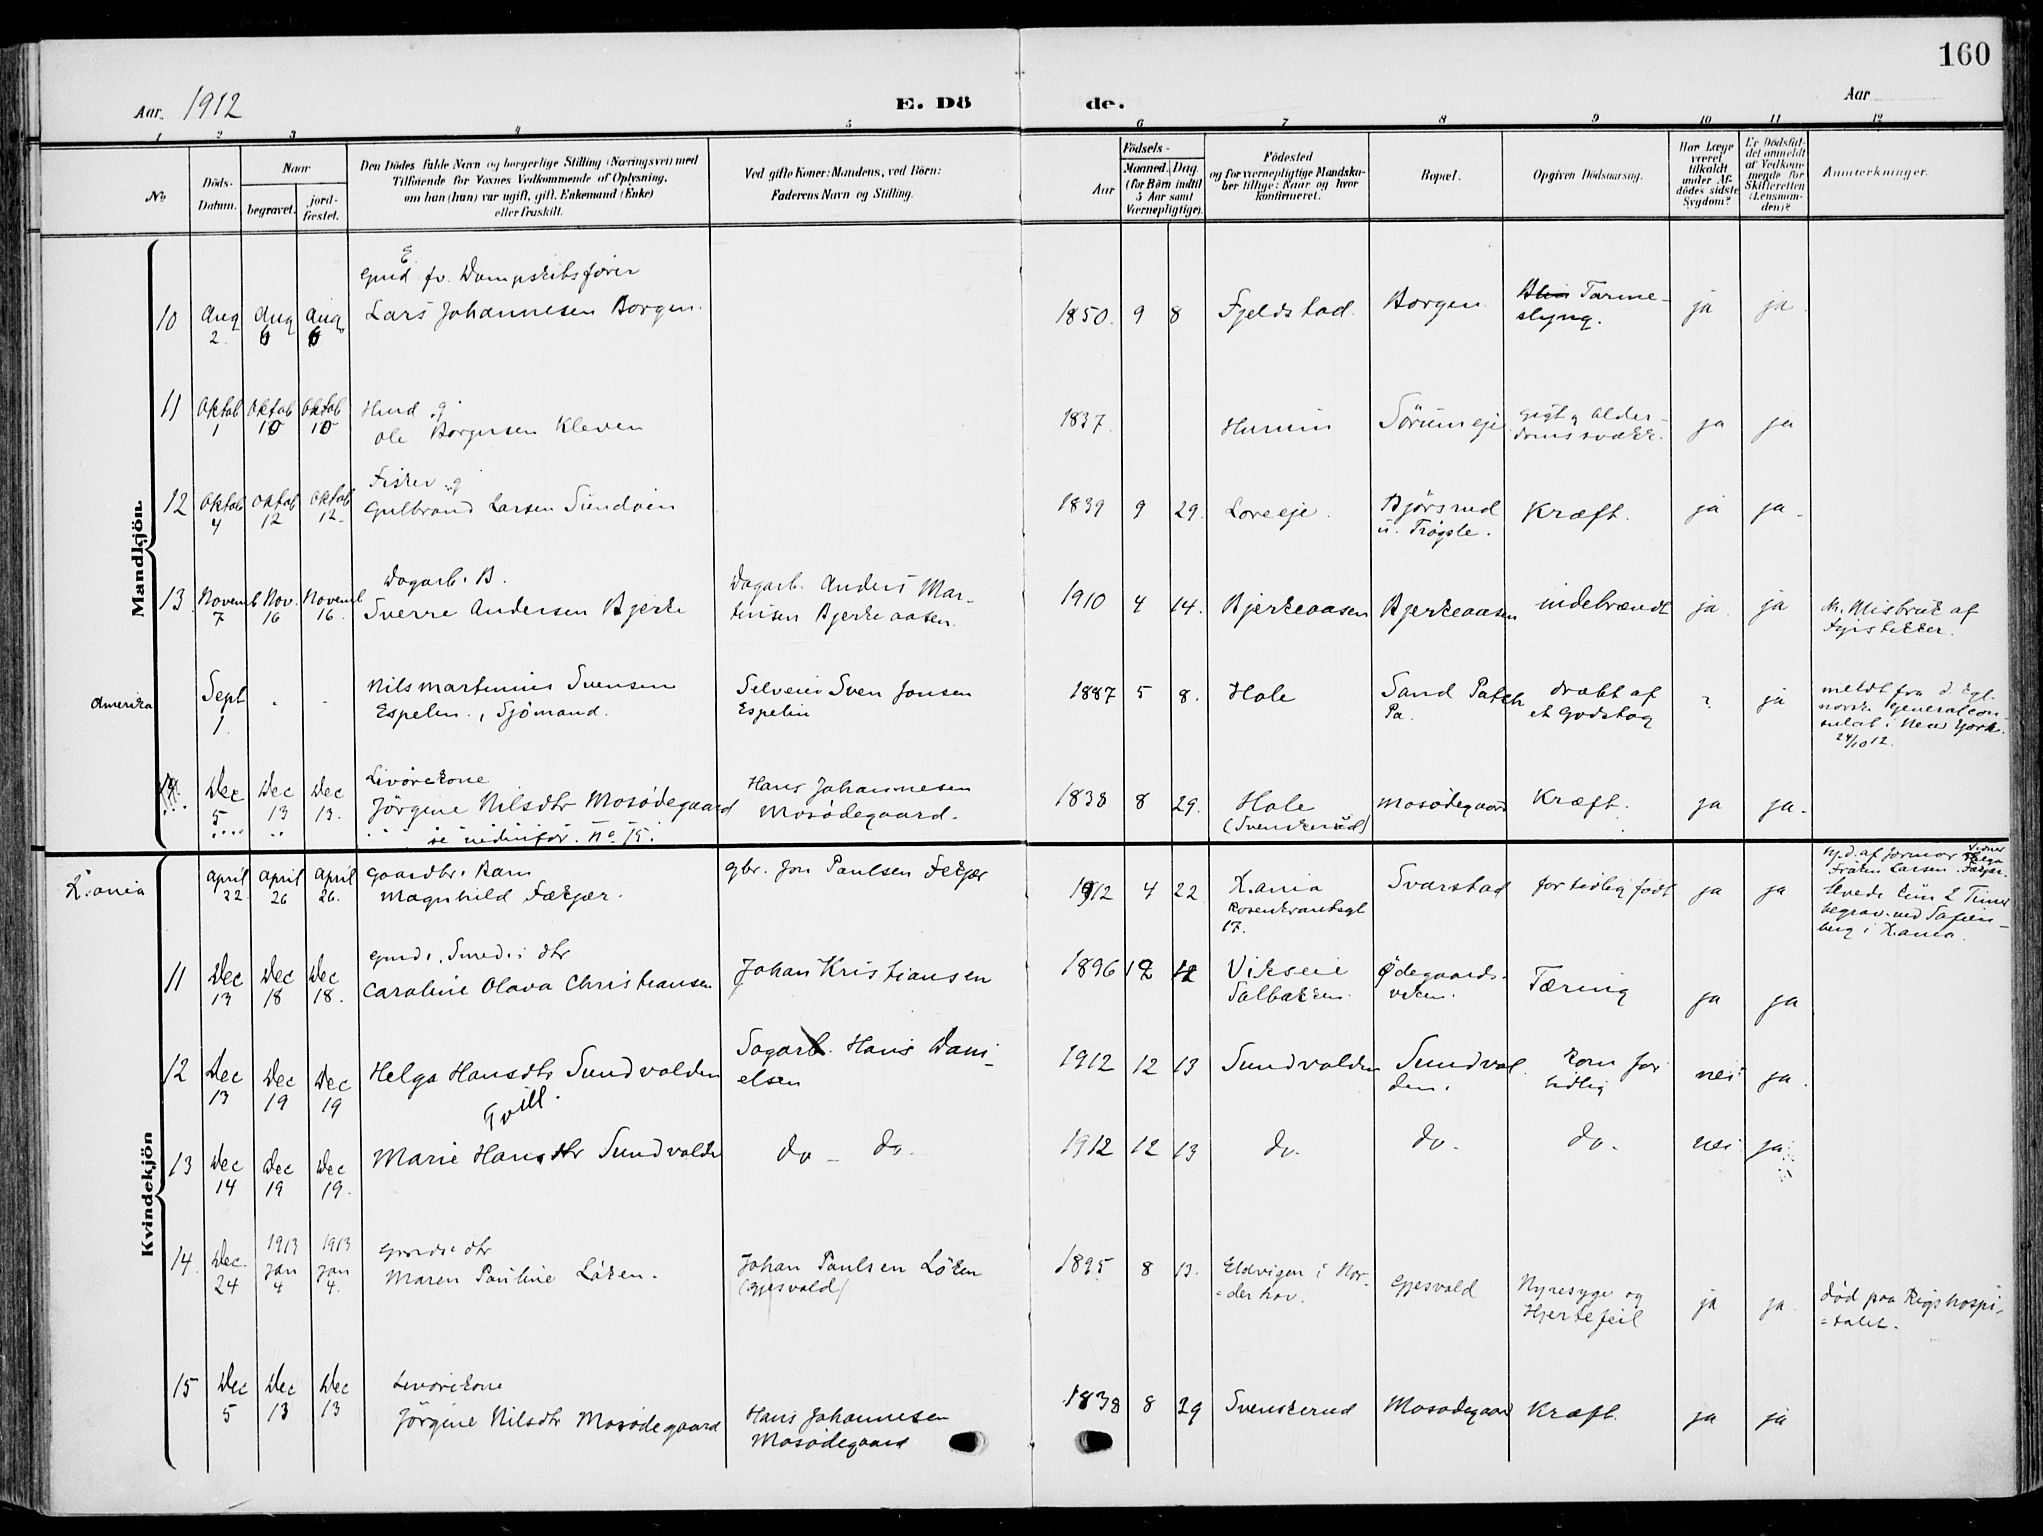 160
Aar 1912
E. Dö de.
Aar
1 2 3 4 5 6 7 8 9 10 11 12
No
Döds-Datum.
Naar
begravet.
jord-fæstet.
Den Dödes fulde Navn og borgerlige Stilling (Næringsvei) med
Tilföiende for Voxnes Vedkommende af Oplysning,
om han (hun) var ugift, gift, Enkemand (Enke)
eller fraskilt.
Ved gifte Koner: Mandens, ved Börn:
Faderens Navn og Stilling.
Födsels-
Aar
Maaned.
Dag.
(for Börn indtil
5 Aar samt
Værnepligtige).
Födested
og for værnepligtige Mandska-
ber tillige: Naar og hvor
konfirmeret.
Bopæl.
Opgiven Dödsaarsag.
Har Læge
været
tilkaldt
under Af-
dödes sidste
Sygdom?
Er Dödsfal-
det anmeldt
af Vedkom-
mende for
Skifteretten
(Lensman-
den)?
Anmerkninger.
Mandkjön.
E
Gmd. fv. Dampskibsfører
10 Aug 2. Aug 6 Aug 6 Lars Johannesen Borgen. 1850. 9 8 Fjeldstad. Borgen Tarme-
slyng. ja ja.
11 Oktob 1 Oktob 10 Oktob 10 Hmd g
Ole Borgersen Kleven 1837. Hurum Sørumeje Gigt og Alder-
domssvækk. ja ja
12 Oktob 4 Oktob 12 Oktob 12. Fisker g
Gulbrand Larsen Sundøen 1839 9 29. Loreeje. Bjørsrud
u. Trøgsle. Kræft. ja ja.
13 Novemb 7 Nov. 16 Novemb 16. Dagarb. B.
Sverre Andersen Bjerke Dagarb. Anders Mar-
tinsen Bjerkeaasen. 1910 4 14. Bjerkeaasen Bjerkeaasen indebrændt ja. ja v. Misbruk af
Fyrstikker.
Amerika Sept 1. . . Nils Martinius Svensen
Espelin., Sjömand. Selveier Sven Jonsen
Espelin 1887 5 8. Hole Sand Patch
Pa. dræbt af
et Godstog ? ja meldt fra d. kgl.
norske Generalkon-
sulat i New York.
24/10 12.
Dec 5 Dec 13 Dec 13. Livørekone
Jörgine Nilsdtr Mosödegaard Hans Johannesen
Mosödegaard. 1838 8 29. Hole
(Svenskerud) Mosödegaard Kræft. ja ja.
se nedenfor. No 15.
Kvindekjön
K:ania April 22 April 26 April 26. Gaardbr. Barn
Magnhild Fækjær. gbr. Jon Paulsen Fekjær 1912 4 22 K.ania
Rosenkrantsgt
17. Svarstad for tidlig födt ja ja hj.d. af formor
Frøken Larsen.
levede kun 2 Timer
begrav. ved Sofien-
berg i K.ania.
11 Dec 13 Dec 18 Dec 18. Gmds, Smeds dtr
Caroline Olava Christiansen Johan Kristiansen 1896 12 12 Vikseie
Salbakken. Ødegaards-
viken. Tæring ja ja
12 Dec 13 Dec 19 Dec 19 Helga Hansdtr Sundvolden Sagarb. Hans Dani-
elsen 1912 12 13 Sundvolden Sundvol
den. kom for
tidlig nei ja.
Tvill.
13 Dec 14 Dec 19 Dec 19. Marie Hansdtr Sundvolde do – do. 1912 12 13 do. do. do. nei ja
14. Dec. 24 1913 Jan 4 1913 Jan 4. Gmds dtr
Maren Pauline Löken. Johan Paulsen Löken
(Gjesvald) 1895 8 13. Eldvigen i Nor-
derhov. Gjesvald Nyresyge og
Hjertefeil ja ja. död paa Rigshospi-
talet.
15 Dec 5 Dec 13 Dec 13 Livørekone
Jörgine Nilsdtr Mosödegaard Hans Johannesen
Mosödegaard 1838 8 29 Svenskerud Mosödegaard Kræft. ja ja